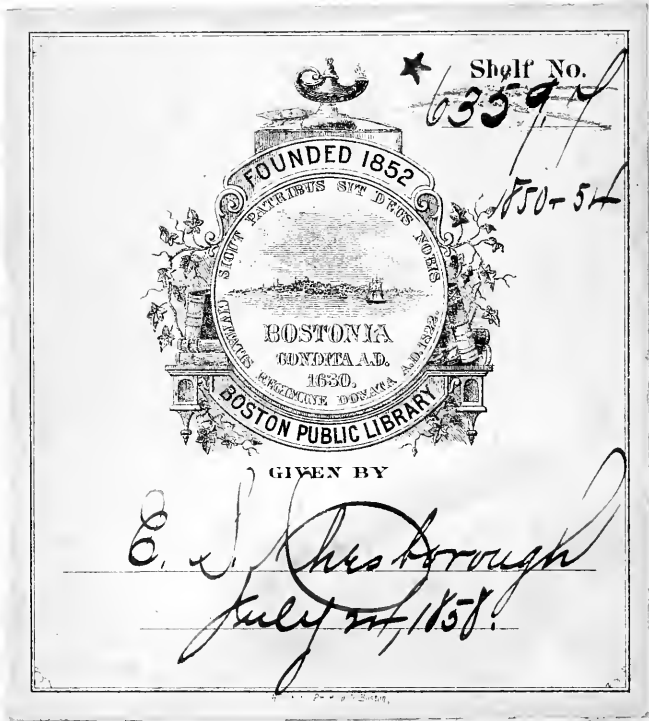 Shelf No.
6359.7
1850-54
FOUNDED 1852
SICUT PATRIBUS SIT DEUS NOBIS
BOSTONIA
CONDITA A.D.
1630.
CIVITATIS REGIMINE DONATA A.D. 1822.
BOSTON PUBLIC LIBRARY
GIVEN BY
E. S. Chesborough
July 24, 1858.